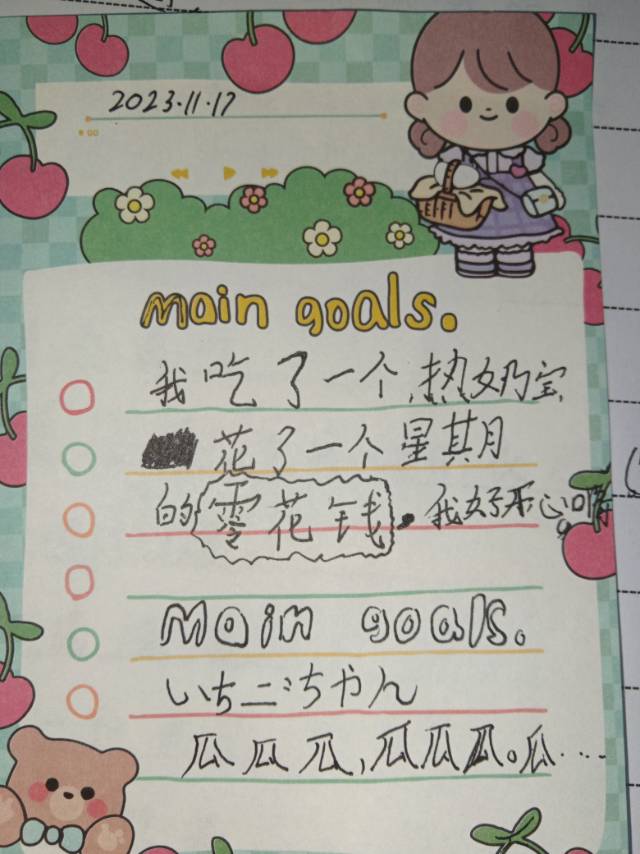 2023.11.17
main goals.
我吃了一个热奶宝
花了一个星其月
的零花钱.我好开心啊
Main goals.
いちごちゃん
瓜瓜瓜,瓜瓜瓜。瓜...